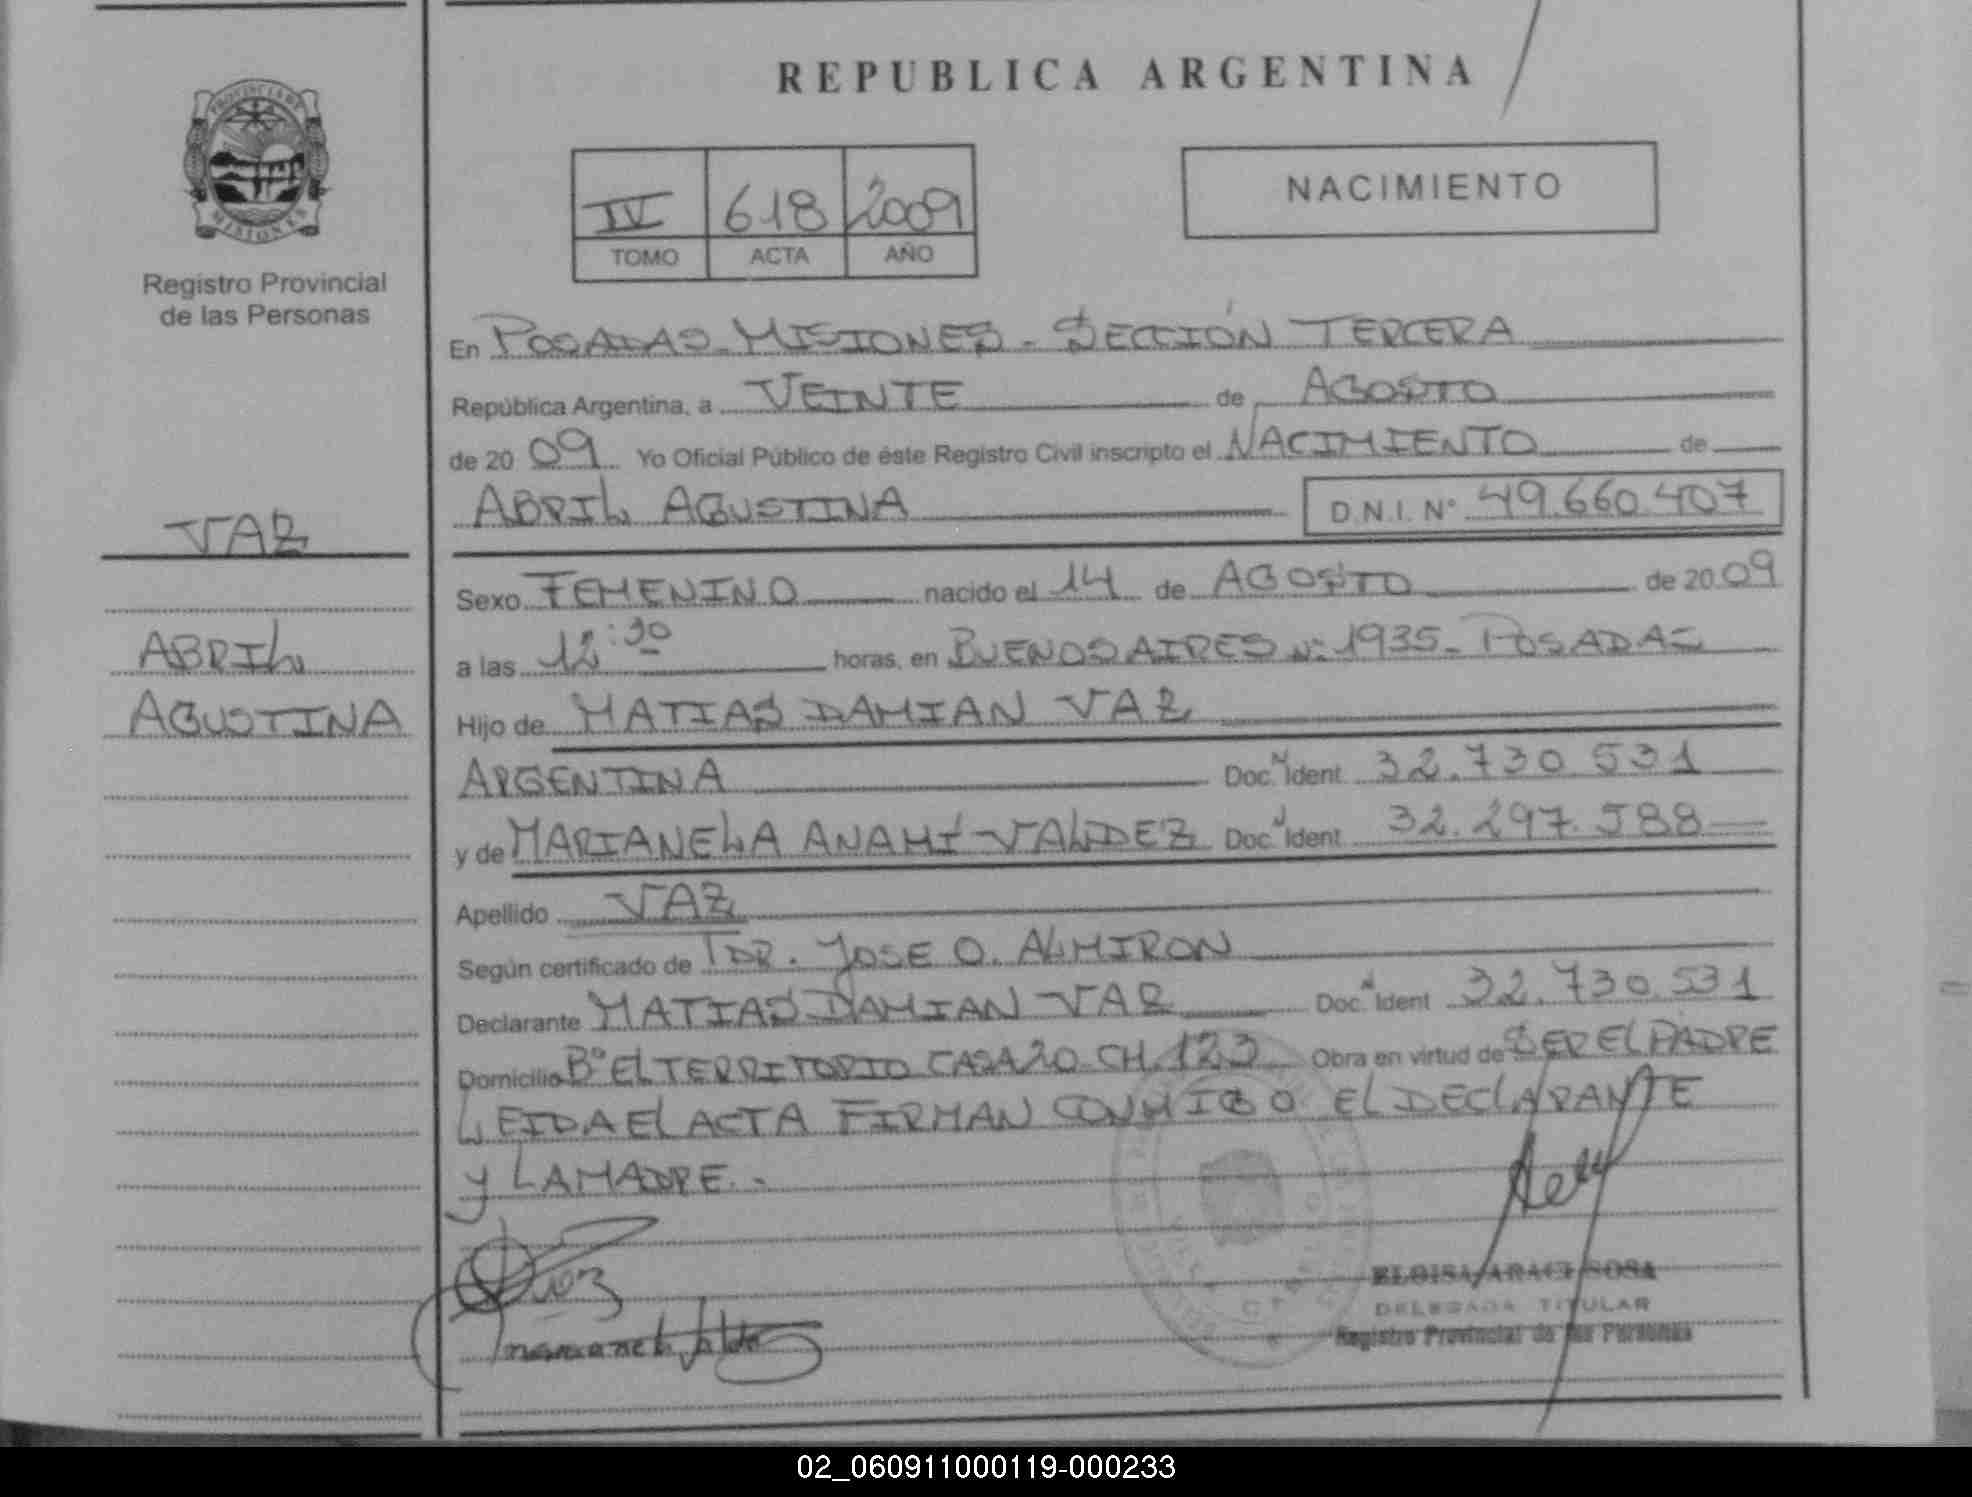 REPUBLICA ARGENTINA
PROVINCIA DE
MISIONES
Registro Provincial
de las Personas
IV 618 2009
TOMO ACTA AÑO
NACIMIENTO
En POSADAS-MISIONES-SECCIÓN TERCERA
República Argentina, a VEINTE de AGOSTO
de 20 09 Yo Oficial Público de éste Registro Civil inscripto el NACIMIENTO de
ABRIL AGUSTINA D.N.I. Nº 49.660.407
VAZ
ABRIL
AGUSTINA
Sexo FEMENINO nacido el 14 de AGOSTO de 20 09
a las 12:30 horas, en BUENOS AIRES Nº 1935- POSADAS
Hijo de MATIAS DAMIAN VAZ
ARGENTINA Doc. Ident 32.730.531
y de MARIANELA ANAHÍ VALDEZ Doc. Ident 32.297.588
Apellido VAZ
Según certificado de DR. JOSE O. ALMIRON
Declarante MATIAS DAMIAN VAZ Doc. Ident 32.730.531
Domicilio Bº EL TERRITORIO CASA 20 CH. 123 Obra en virtud de SER EL PADRE
LEIDA EL ACTA FIRMAN CONMIGO EL DECLARANTE
y LA MADRE.-
ELOISA ARACI SOSA
DELEGADA TITULAR
Registro Provincial de las Personas
02_060911000119-000233